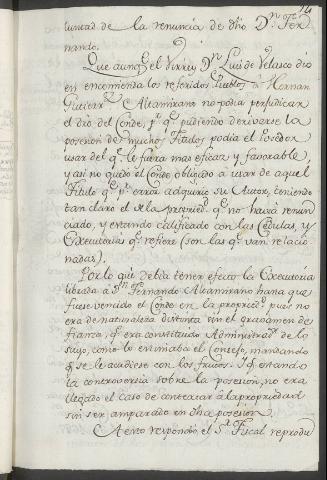 luntad de la renuncia de dho Dn. Fer
nando.
Que aunq. el Virrey Dn. Luis de Velasco dio
en encomienda los referidos Pueblos à Hernan
Gutierrz. Altamirano no podia perjudicar
el dro del Conde, pr. q. pudiendo deverse la
posesion de muchos Titulos podia el Posedor
usar del q. le fuera mas eficaz y favorable,
y asi no quedó el Conde obligado à usar de aquel
Titulo q. pr. error adquirio su Autor, teniendo
tan claro el de la propriedd. q. no havia renun
ciado, y estando calificado con las Cedulas, y
Executorias q. refiere (son las q. van relacio
nadas).
Por lo que debia tener efecto la Executoria
librada à Dn. Fernando Altamirano hasta que
fuese vencido el Conde en la propriedd. pues no
era de naturaleza distinta sin el gravamen de
fianza, q. era constituido Administradr. de lo
suyo, como lo estimaba el Consejo, mandando
q. se le acudiese con los frutos. Y q. estando
la controversia sobre la posesion, no era
llegado el caso de contextar à la propriedad
sin ser amparado en dha posesion.
A esto respondió, el Sr. Fiscal reprodu